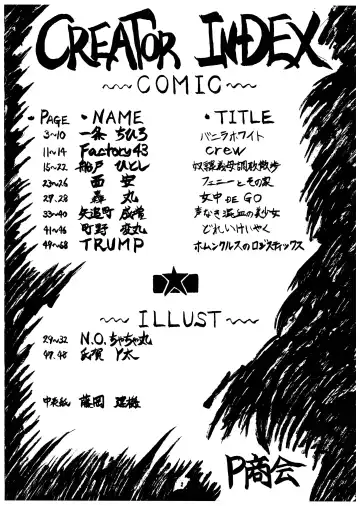 CREATOR INDEX
~~COMIC~~
・PAGE ・NAME ・TITLE
3~10 一条 ちひろ バニラホワイト
11~14 Factory43 crew
15~22 船戸 ひとし 奴隷義母調教散歩
23~26 西 安
27.28 轟 丸 女中 DE GO
33~40 矢追町 成増 声なき混血の美少女
41~46 町野 変丸 どれいけいやく
49~68 TRUMP ホムンクルスのロジスティックス
~~ILLUST~~
29~32 N.O.ちゃちゃ丸
47.48 氏賀 Y太
中表紙 藤岡
P商会